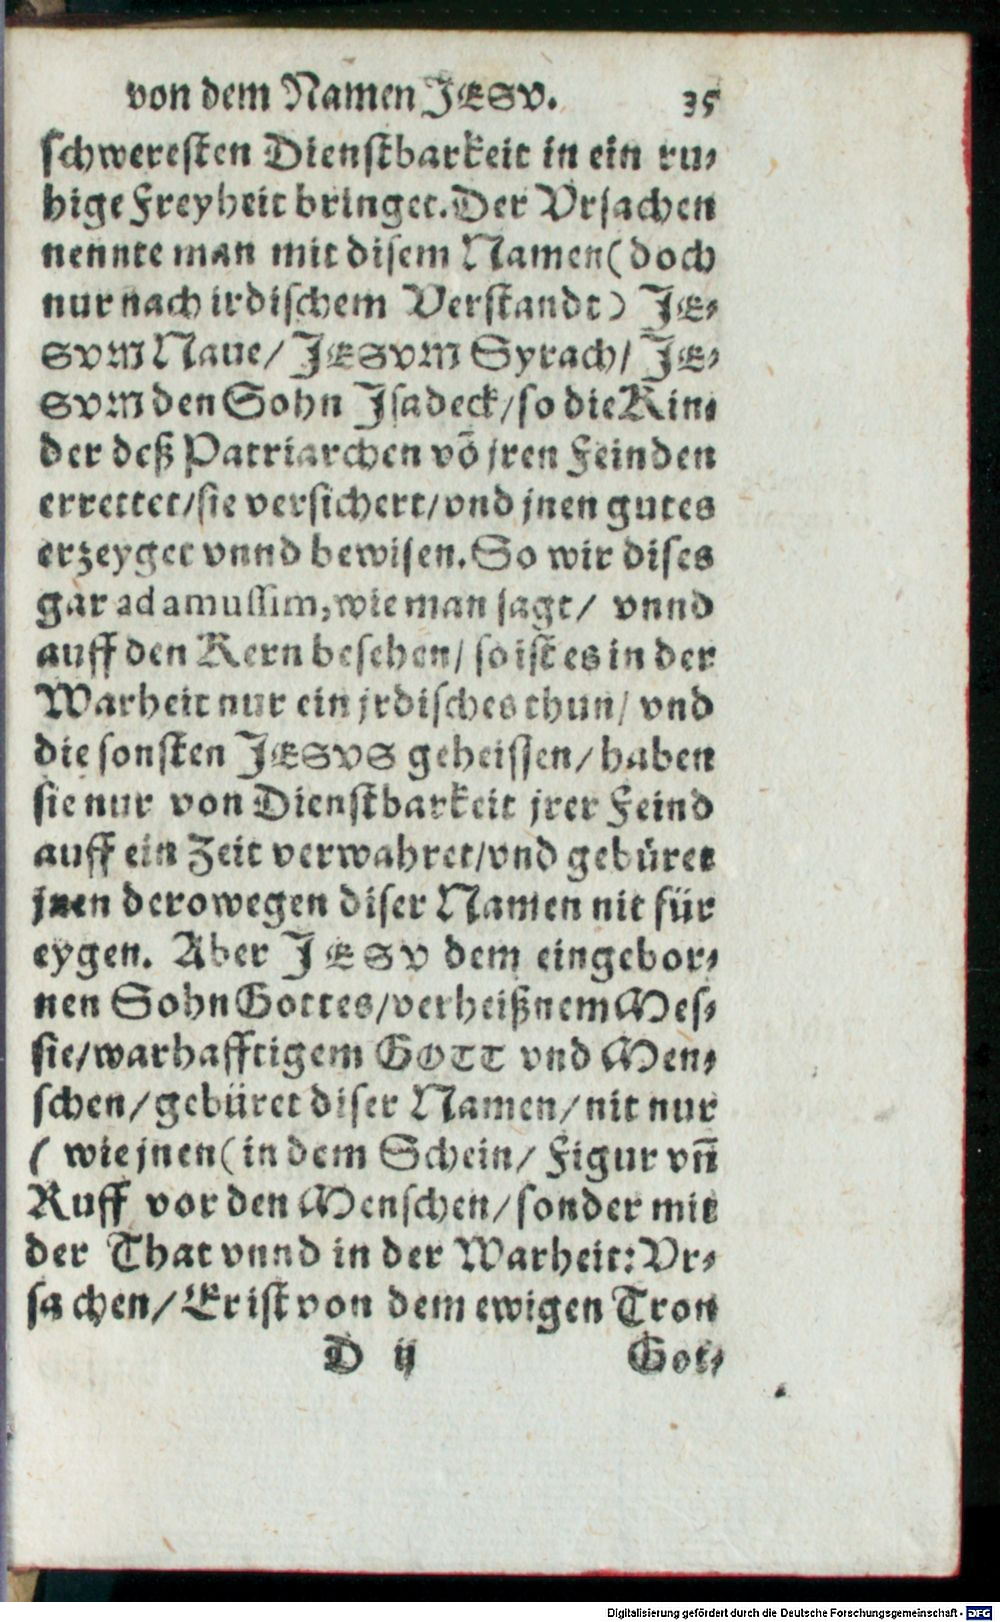 von dem Namen JESV. 35
schweresten Dienstbarkeit in ein ru-
hige Freyheit bringet. Der Vrsachen
nennte man mit disem Namen (doch
nur nach irdischem Verstandt) JE-
SVM Naue/ JESVM Syrach/ JE-
SVM den Sohn Jsadeck/ so die Kin-
der deß Patriarchen võ jren Feinden
errettet/ sie versichert/ vnd jnen gutes
erzeyget vnnd bewisen. So wir dises
gar ad amussim, wie man sagt/ vnnd
auff den Kern besehen/ so ist es in der
Warheit nur ein jrdisches thun/ vnd
die sonsten JESVS geheissen/ haben
sie nur von Dienstbarkeit jrer Feind
auff ein Zeit verwahret/ vnd gebüret
jnen derowegen diser Namen nit für
eygen. Aber JESV dem eingebor-
nen Sohn Gottes/ verheißnem Mes-
sie/ warhafftigem GOTT vnd Men-
schen/ gebüret diser Namen/ nit nur
( wie jnen ( in dem Schein/ Figur vñ
Ruff vor den Menschen/ sonder mit
der That vnnd in der Warheit: Vr-
sachen/ Er ist von dem ewigen Tron
D ij Got-
Digitalisierung gefördert durch die Deutsche Forschungsgemeinschaft - DFG